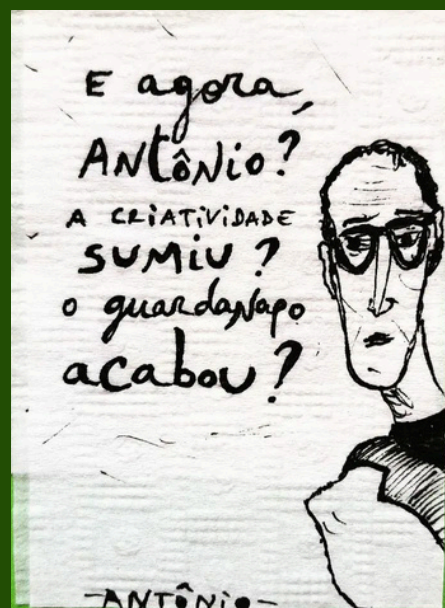 E agora,
ANtÔNio?
A CRiATiViDADE
SUMiU?
o guardaNapo
acabou?
-ANTÔNio-